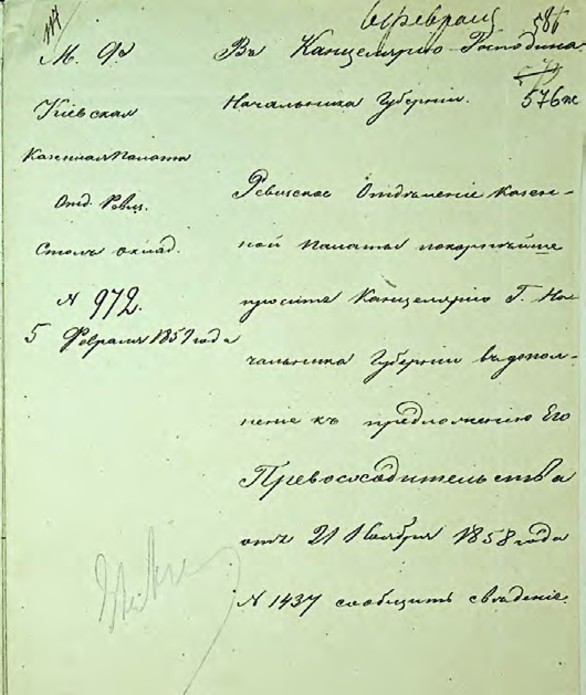 6 февраля 586
М. Ф.
Кіевская
Казенная Палата
Отд. Ревиз.
Столъ оклад.
№ 972.
5 Февраля 1859 года
Въ Канцелярію Господина
Начальника Губерніи. 576
Ревизское Отдѣленіе Казен-
ной Палаты покорнѣйше
проситъ Канцелярію Г. На-
чальника Губерніи въ допол-
неніе къ предложенію Его
Превосходительства
отъ 21 Ноября 1858 года
№ 1437 сообщить свѣденіе